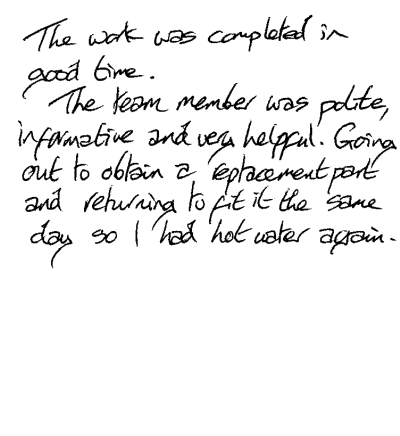 The work was completed in
good time.
The team member was polite,
informative and very helpful. Going
out to obtain a replacement part
and returning to fit it the same
day so I had hot water again.